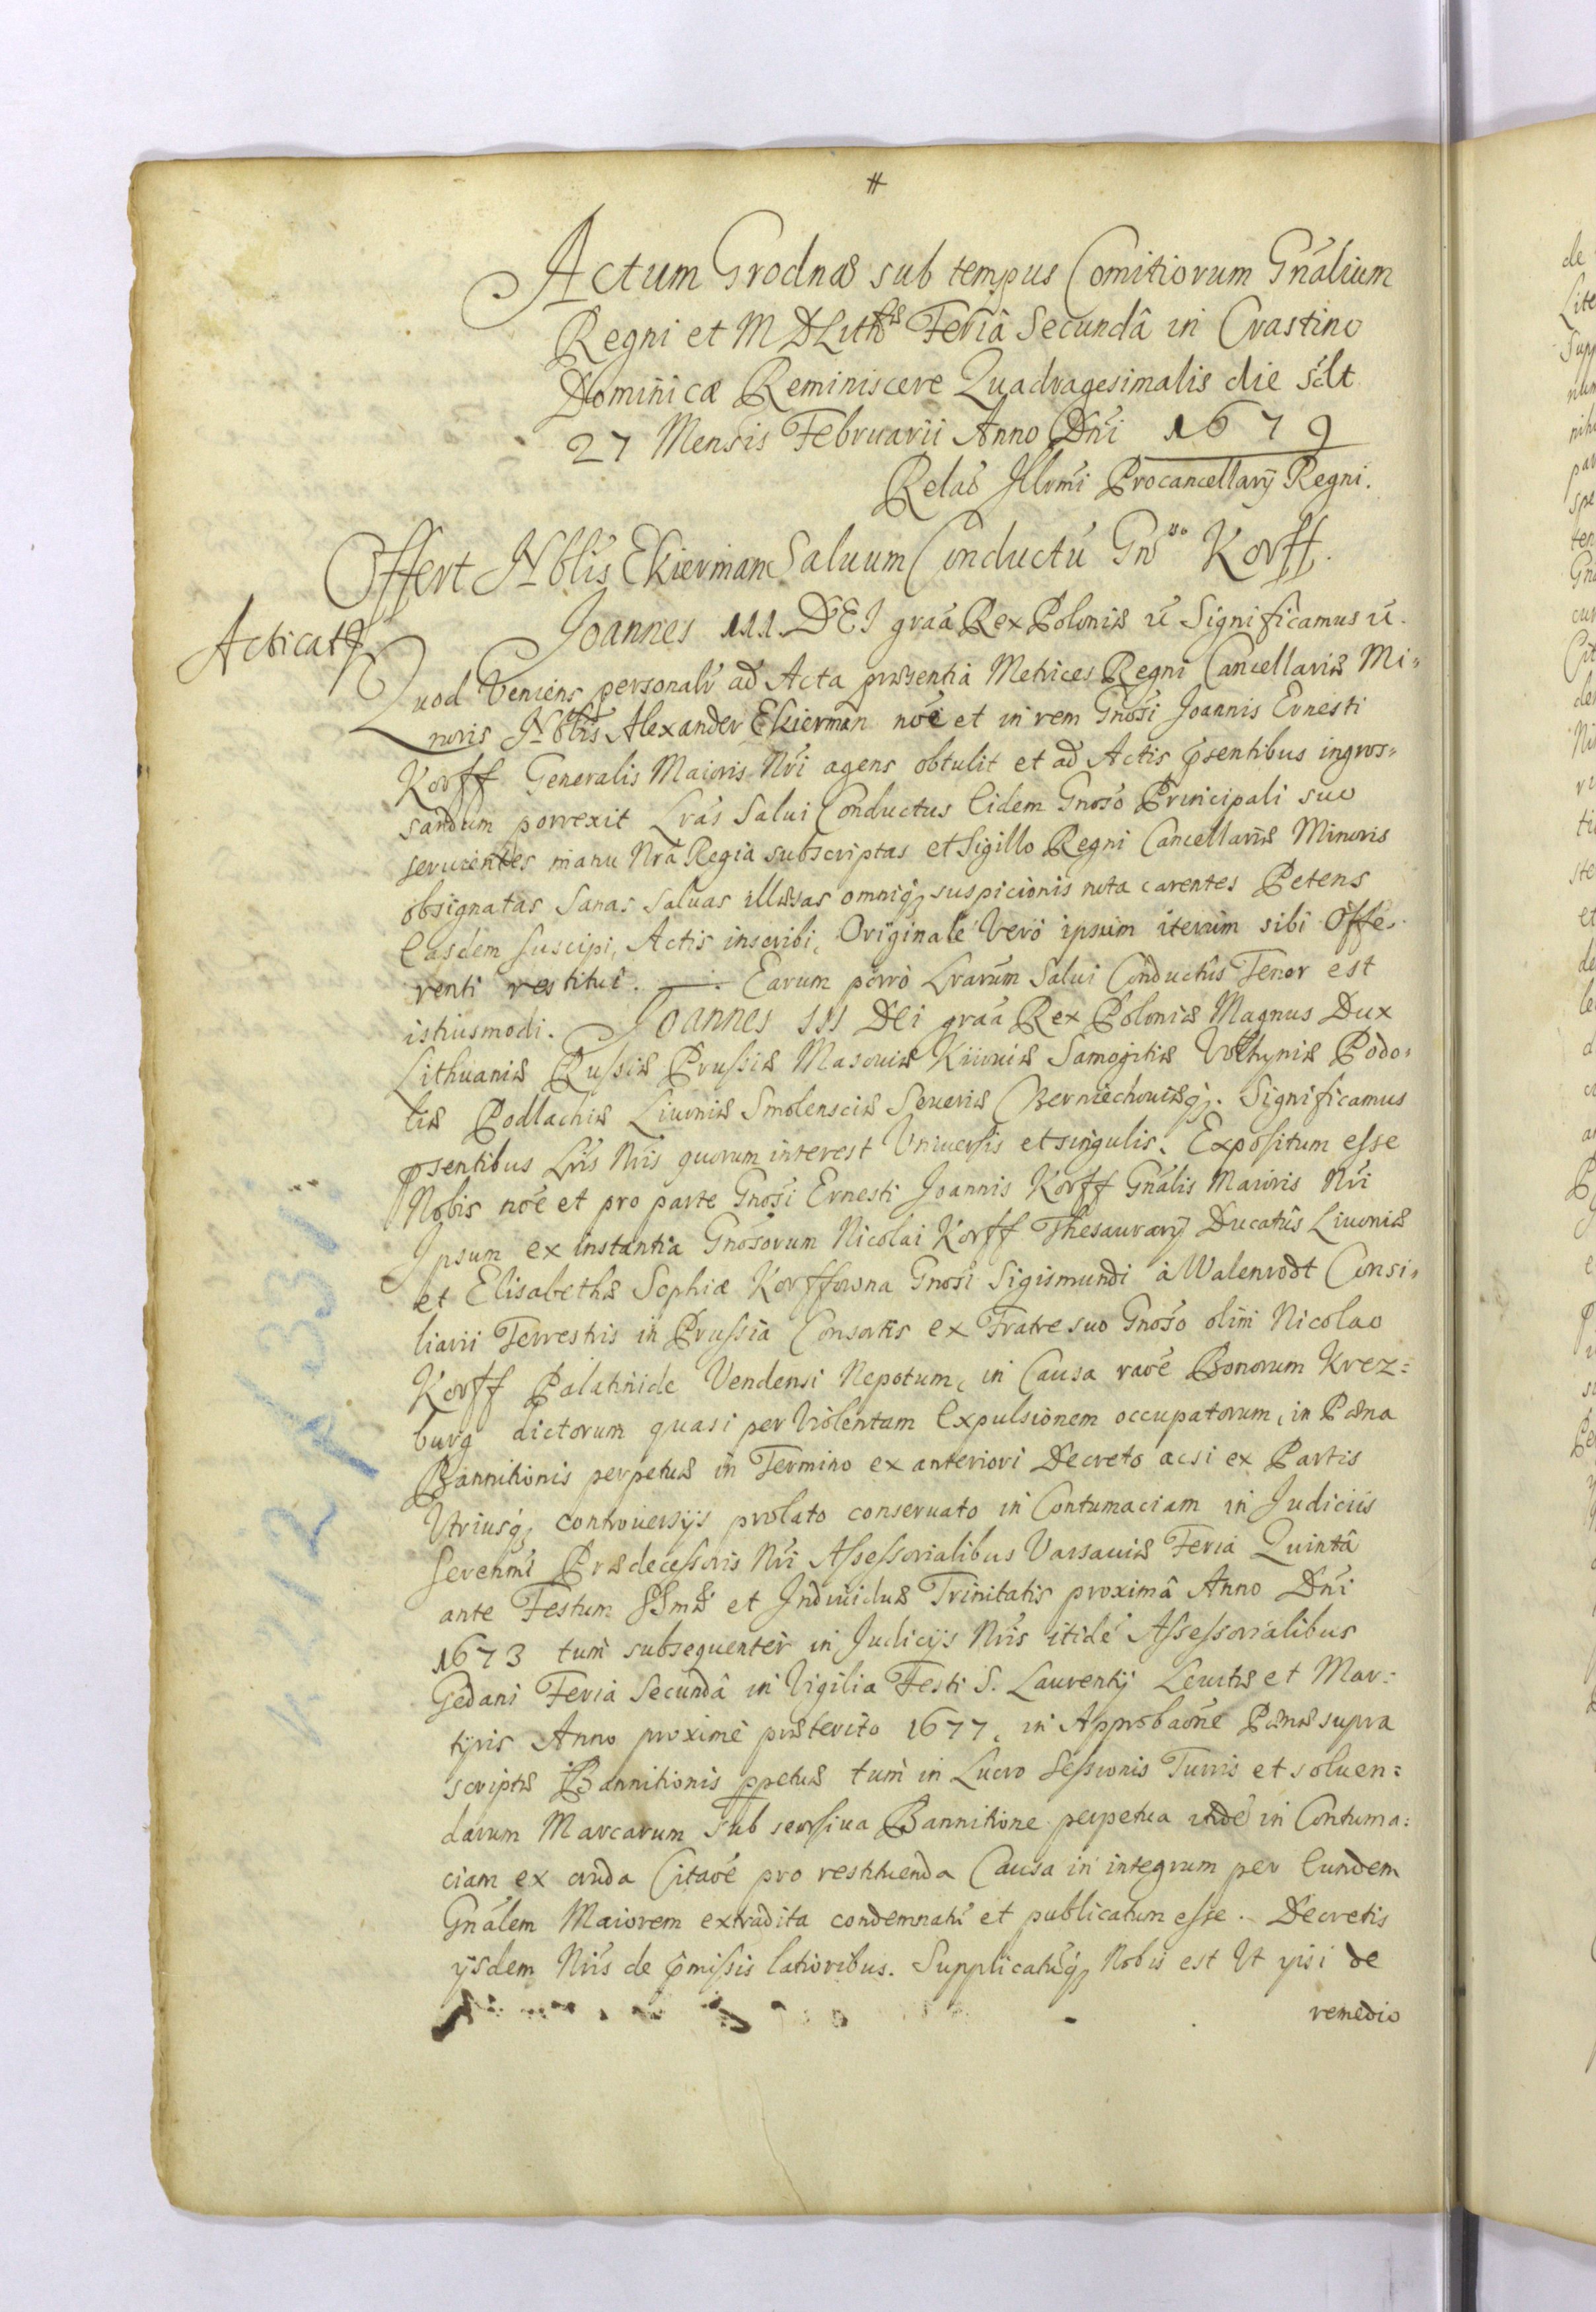 #
Actum Grodnæ sub tempus Comitiorum Gnãlium
Regni et M D Lithæ Feriâ Secundâ in Crastino
Dominicæ Reminiscere Quadragesimalis die sclt
27 Mensis Februarii Anno Dni 1679
Relaõ Illrmi Procancellarij Regni.
Offert Nblis Ekierman Saluum Conductũ Gnõ Korff.
Acticatʒ
Joannes III. DEI graã Rex Poloniæ ũ Significamus ũ.
Quod Veniens personalr ad Acta præsentia Metrices Regni Cancellariæ Mi=
noris Nblis Alexander Ekierman noẽ et in rem Gnosi Joannis Ernesti
Korff Generalis Maioris Nri agens obtulit et ad Actis pñsentibus ingros=
sandum porrexit Lrãs Salui Conductus Eidem Gnoso Principali suo
seruientes manu Nrã Regia subscriptas et Sigillo Regni Cancellariæ Minoris
obsignatas Sanas Saluas illæsas omniq suspicionis nota carentes Petens
Easdem suscipi, Actis inscribi, Originale Verò ipsum iterum sibi Offe=
renti restitui. — Earum porrò Lrarum Salui Conductûs Tenor est
istiusmodi. Joannes III Dei graã Rex Poloniæ Magnus Dux
Lithuaniæ Russiæ Prussiæ Masouiæ Kiiouiæ Samogitiæ Volhyniæ Podo=
liæ Podlachiæ Liuoniæ Smolensciæ Seueriæ Czerniechouiæq. Significamus
pñsentibus Lris Nris quorum interest Vniuersis et singulis. Expositum esse
Nobis noẽ et pro parte Gnosi Ernesti Joannis Korff Gnãlis Maioris Nri
Ipsum ex instantia Gnosorum Nicolai Korff Thesaurarij Ducatûs Liuoniæ
et Elisabethæ Sophiæ Korffowna Gnosi Sigismundi à Walenrodt Consi=
liarii Terrestris in Prussia Consortis ex Fratre suo Gnoso olim Nicolao
Korff Palatinide Vendensi Nepotum, in Causa raõe Bonorum Krez=
burg dictorum quasi per Violentam Expulsionem occupatorum, in Pæna
Bannitionis perpetuæ in Termino ex anteriori Decreto acsi ex Partis
Vtriusq controuersijs prolato conseruato in Contumaciam in Judiciis
Serenmi Prædecessoris Nri Assessorialibus Varsauiæ Feria Quintâ
ante Festum SSmæ et Indiuiduæ Trinitatis proximâ Anno Dni
1673 tum subsequenter in Judicijs Nris itidẽ Assessorialibus
Gedani Feria Secundâ in Vigilia Festi S. Laurentij Leuitæ et Mar=
tyris Anno proximè præterito 1677, in Approbaõne Pænæ supra
scriptæ Bannitionis ppetuæ tum in Lucro Sessionis Turris et soluen=
darum Marcarum sub seorsiua Bannitione perpetua inde in Contuma=
ciam ex Citaõe pro restituenda Causa in integrum per Eundem
Gnãlem Maiorem extradita condemnatũ et publicatum esse. Decretis
ijsdem Nris de pmissis latioribus. Supplicatũq Nobis est Vt ipsi de
remedio